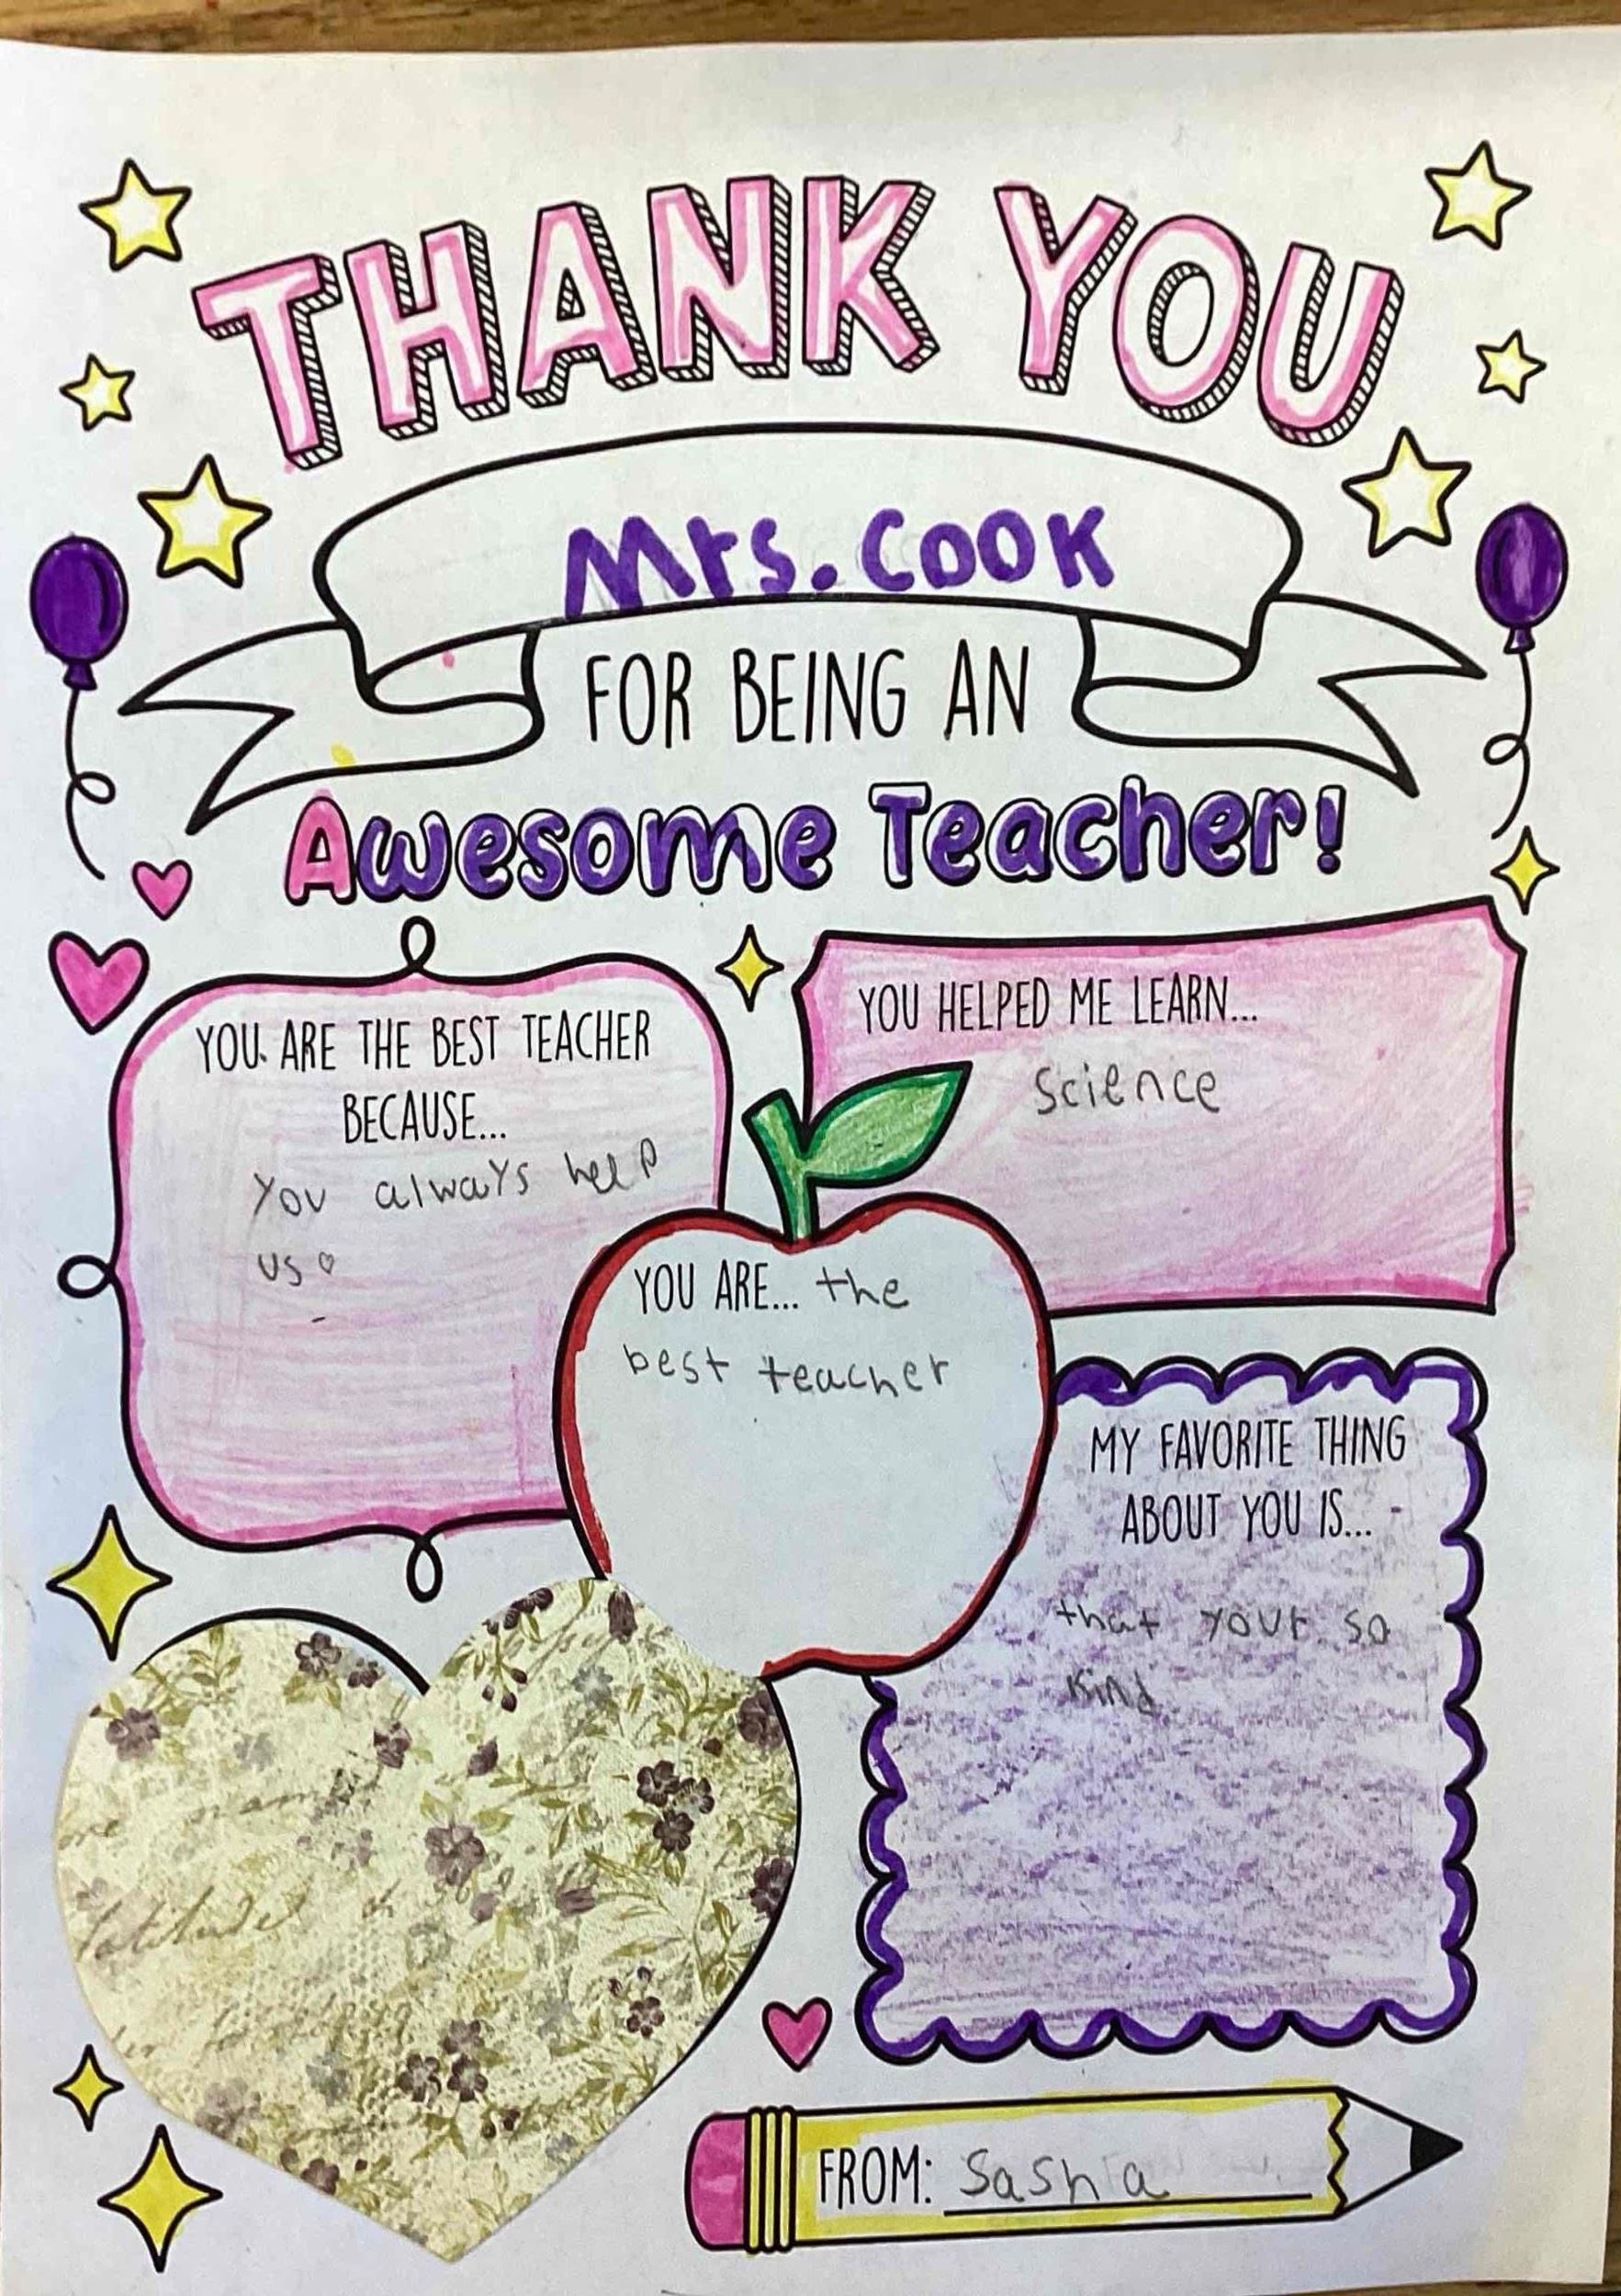 THANK YOU
Mrs. Cook
FOR BEING AN
Awesome Teacher!
YOU ARE THE BEST TEACHER
BECAUSE...
You always help
us
YOU HELPED ME LEARN...
Science
YOU ARE... the
best teacher
MY FAVORITE THING
ABOUT YOU IS...
that your so
kind
FROM: Sasha